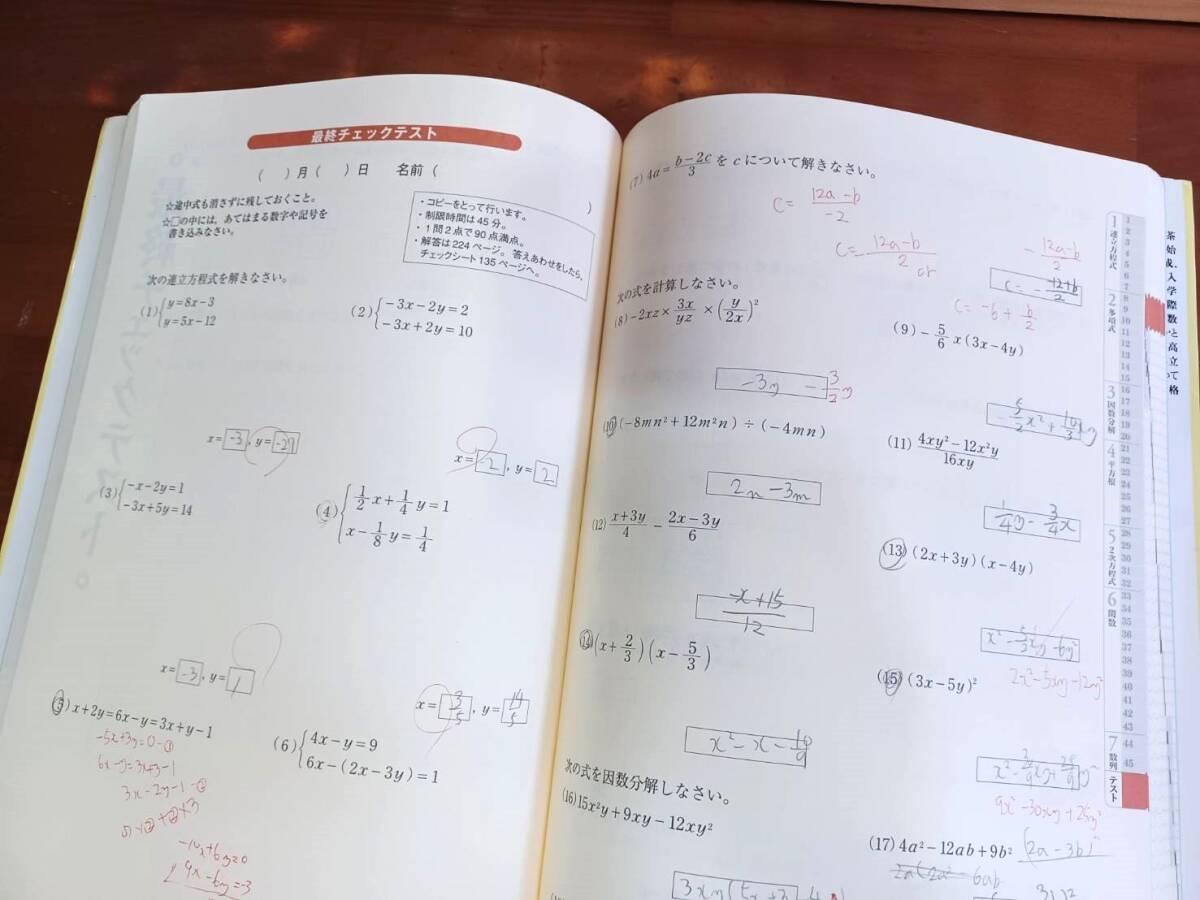 最終チェックテスト
( )月( )日 名前(
)
☆途中式も消さずに残しておくこと。
☆□の中には、あてはまる数字や記号を
書き込みなさい。
・コピーをとって行います。
・制限時間は45分。
・1問2点で90点満点。
・解答は224ページ。答えあわせをしたら、
チェックシート135ページへ。
次の連立方程式を解きなさい。
(1) y=8x−3
y=5x−12
(2) −3x−2y=2
−3x+2y=10
x=-3, y=-27
x=-2, y=2
(3) −x−2y=1
−3x+5y=14
(4) 1/2x+1/4y=1
x−1/8y=1/4
x=-3, y=1
x=3/5, y=14/5
(5) x+2y=6x−y=3x+y−1
-5x+3y=0-①
3x-2y=-1-②
-10x+6y=0
9x-6y=-3
(6) 4x−y=9
6x−(2x−3y)=1
(7) 4a=b−2c/3をcについて解きなさい。
C=12a-b/-2
C=-12a-b/2 or
-12a-b/2
C=-12+b/2
C=-6+b/2
次の式を計算しなさい。
(8) −2xz×3x/yz×(y/2x)²
(9) −5/6x(3x−4y)
-3y -3/2y
-5/2x²+10/3xy
(10) (−8mn²+12m²n)÷(−4mn)
(11) 4xy²−12x²y/16xy
2n-3m
1/4y-3/4x
(12) x+3y/4−2x−3y/6
(13) (2x+3y)(x−4y)
-x+15/12
2x²-5xy-12y²
(14) (x+2/3)(x−5/3)
(15) (3x−5y)²
x²-x-10/9
9x²-30xy+25y²
次の式を因数分解しなさい。
(16) 15x²y+9xy−12xy²
(17) 4a²−12ab+9b²
(2a-3b)²
2a(2a²-6ab
1 連立方程式
1
2
3
4
5
6
7
2 多項式
8
9
10
11
12
13
14
15
3 因数分解
16
17
18
19
20
4 平方根
21
22
23
24
25
26
27
5 2次方程式
28
29
30
31
32
6 関数
33
34
35
36
37
38
39
40
41
42
43
7 数列
44
45
テスト